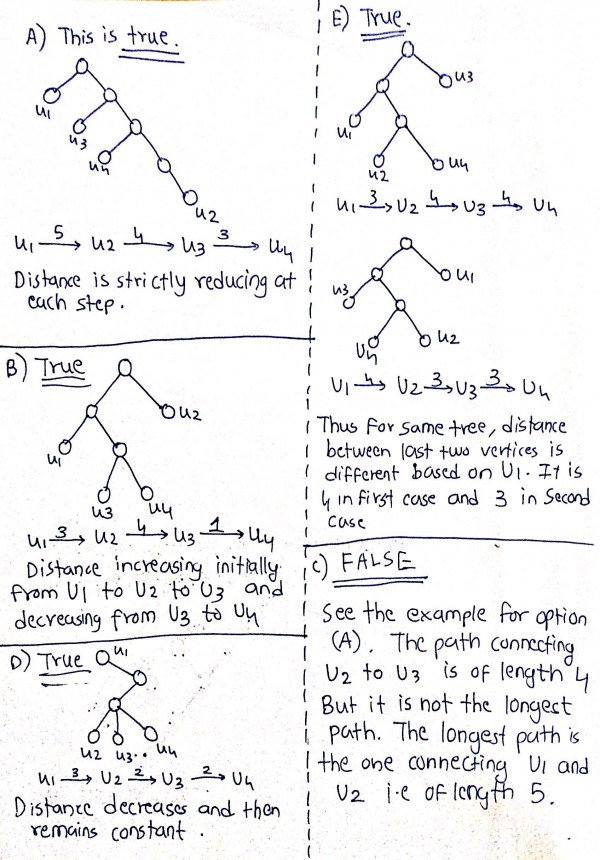 A) This is true.
u1
u3
u4
u2
u1 5→ u2 4→ u3 3→ u4
Distance is strictly reducing at
each step.
B) True
u2
u1
u3
u4
u1 3→ u2 4→ u3 1→ u4
Distance increasing initially
from U1 to U2 to U3 and
decreasing from U3 to U4
D) True
u1
u2 u3.. u4
u1 3→ u2 2→ u3 2→ u4
Distance decreases and then
remains constant.
E) True.
u3
u1
u2
u4
u1 3→ U2 4→ U3 4→ U4
u3
u1
u4
u2
U1 4→ U2 3→ U3 3→ U4
Thus for same tree, distance
between last two vertices is
different based on U1. It is
4 in first case and 3 in Second
Case
C) FALSE
See the example for option
(A). The path connecting
U2 to U3 is of length 4
But it is not the longest
path. The longest path is
the one connecting U1 and
U2 i.e of length 5.